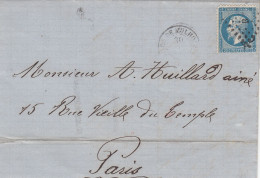 Monsieur A. Huillard ainé
15 Rue Vieille du Temple
Paris